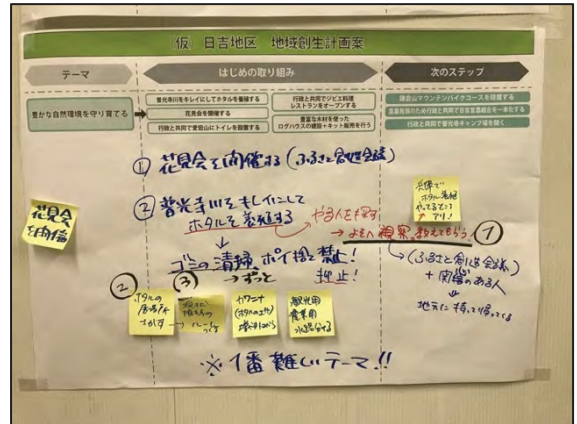 (仮) 日吉地区 地域創生計画案
テーマ
はじめの取り組み
次のステップ
豊かな自然環境を守り育てる
普光寺川をキレイにしてホタルを養殖する
花見会を開催する
行政と共同で愛宕山にトイレを設置する
行政と共同でジビエ料理
レストランをオープンする
豊富な木材を使った
ログハウスの建設+キット販売を行う
鎌倉山マウンテンバイクコースを設置する
行政と共同で普光寺キャンプ場を開く
① 花見会を開催する (ふるさと創造会議)
② 普光寺川をキレイにして
ホタルを養殖する
やる人を探す
→ よそへ視察。教えてもらう ①
↓
ゴミの清掃 ポイ捨て禁止!
→ずっと 抑止!
花見会
を開催
兵庫で
ホタル養殖
やってるところ
アリ!
(ふるさと創造会議)
+ 関心のある人
↓
地元に持って帰ってくる
②
ホタルの
居場所
さがす
③
カワニナ
(ホタルのエサ)
観光用
農業用
※ 1番難しいテーマ!!